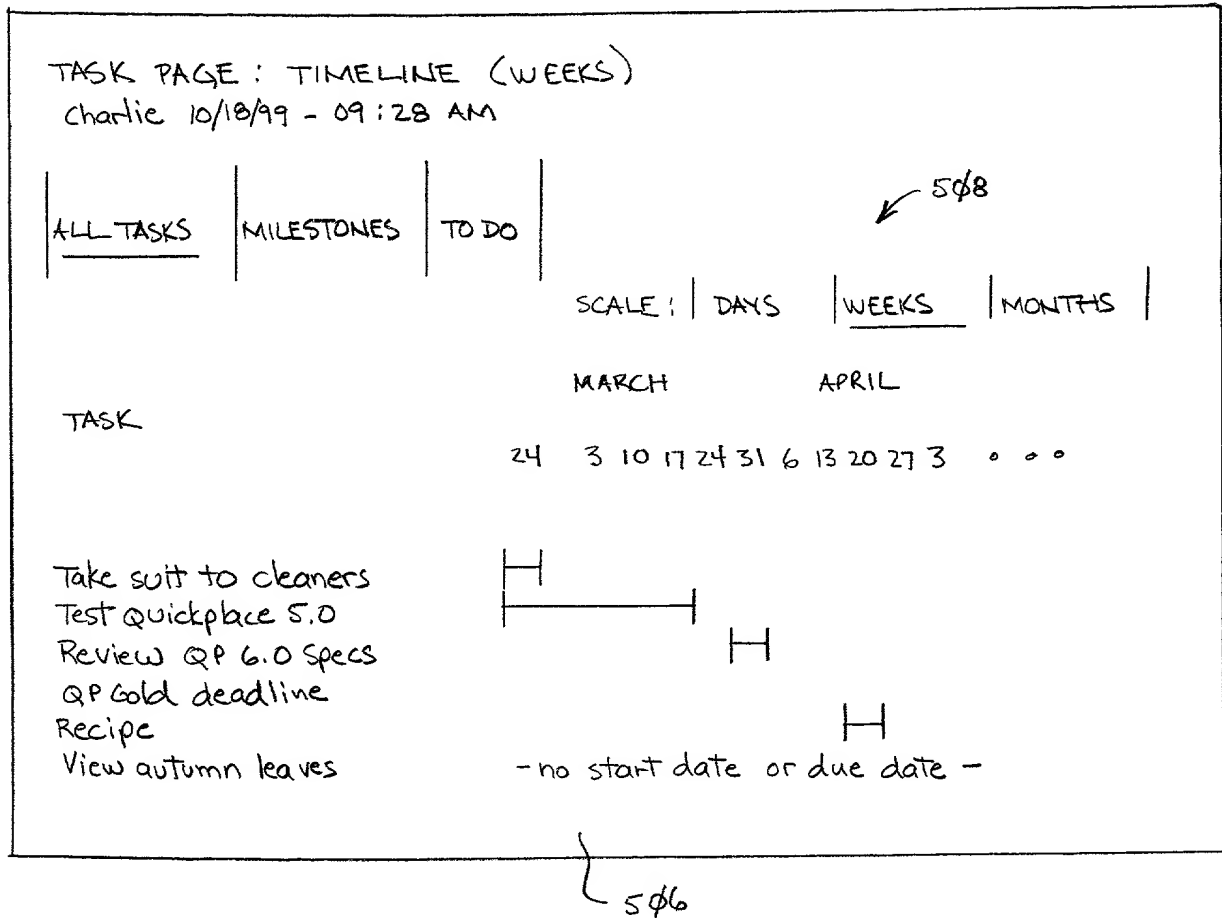 TASK PAGE: TIMELINE (WEEKS)
Charlie 10/18/99 - 09:28 AM
ALL TASKS MILESTONES TO DO
508
SCALE: DAYS WEEKS MONTHS
MARCH APRIL
TASK
24 3 10 17 24 31 6 13 20 27 3 • • •
Take suit to cleaners
Test Quickplace 5.0
Review QP 6.0 Specs
QP Gold deadline
Recipe
View autumn leaves - no start date or due date -
506